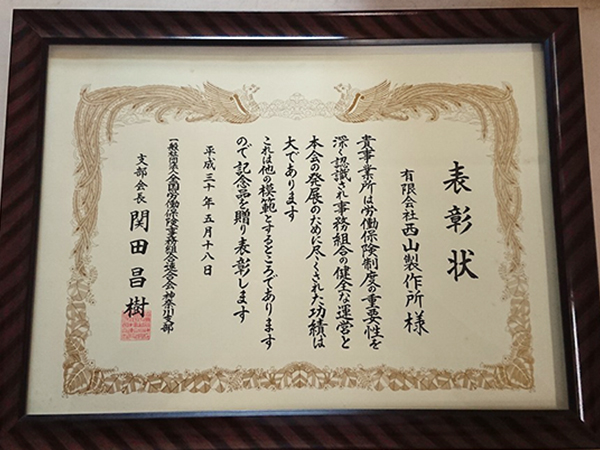 表彰状
有限会社西山製作所 様
貴事業所は労働保険制度の重要性を
深く認識され事務組合の健全な運営と
本会の発展のために尽くされた功績は
大であります
これは他の模範とするところであります
ので記念品を贈り表彰します
平成三十年五月十八日
一般社団法人全国労働保険事務組合連合会神奈川支部
支部会長 関田昌樹